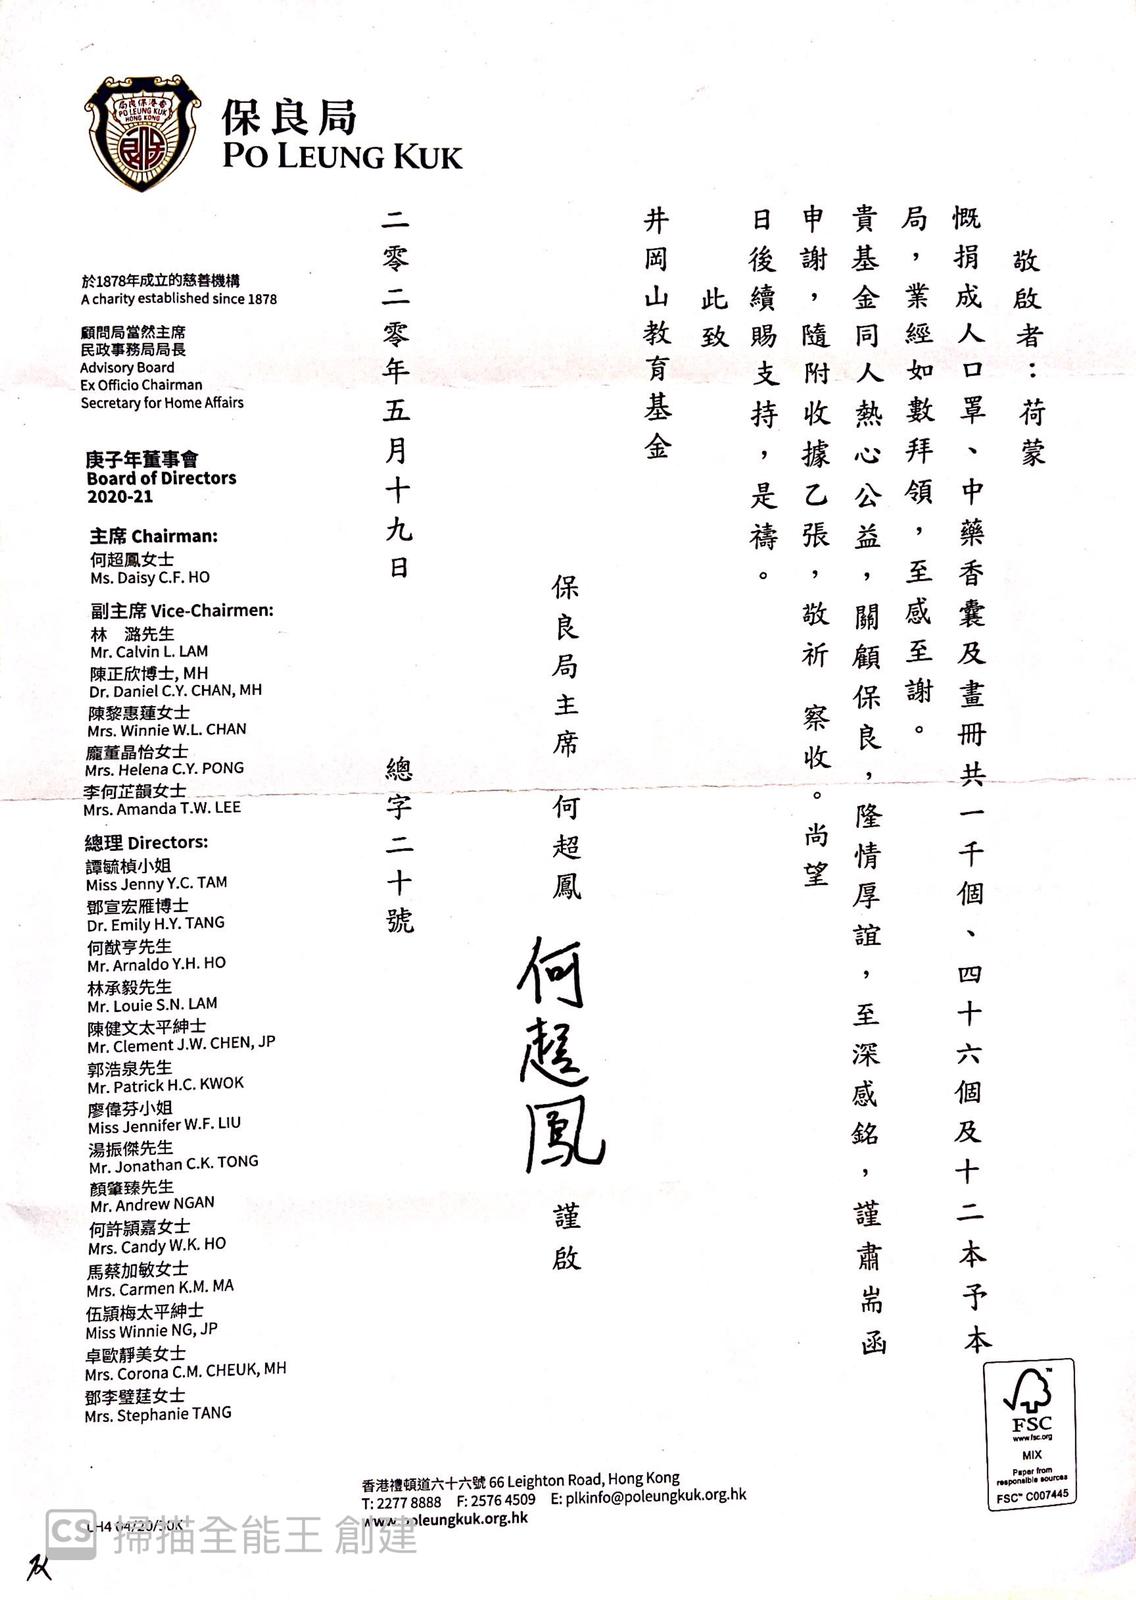 香港保良局
PO LEUNG KUK
HONG KONG
保良局
PO LEUNG KUK
敬啟者：荷蒙
慨捐成人口罩、中藥香囊及畫冊共一千個、四十六個及十二本予本
局，業經如數拜領，至感至謝。
貴基金同人熱心公益，關顧保良，隆情厚誼，至深感銘，謹肅耑函
申謝，隨附收據乙張，敬祈　察收。尚望
日後續賜支持，是禱。
此致
井岡山教育基金
保良局主席　何超鳳
何超鳳
謹啟
二零二零年五月十九日
總字二十號
於1878年成立的慈善機構
A charity established since 1878
顧問局當然主席
民政事務局局長
Advisory Board
Ex Officio Chairman
Secretary for Home Affairs
庚子年董事會
Board of Directors
2020-21
主席 Chairman:
何超鳳女士
Ms. Daisy C.F. HO
副主席 Vice-Chairmen:
林　潞先生
Mr. Calvin L. LAM
陳正欣博士, MH
Dr. Daniel C.Y. CHAN, MH
陳黎惠蓮女士
Mrs. Winnie W.L. CHAN
龐董晶怡女士
Mrs. Helena C.Y. PONG
李何芷韻女士
Mrs. Amanda T.W. LEE
總理 Directors:
譚毓楨小姐
Miss Jenny Y.C. TAM
鄧宣宏雁博士
Dr. Emily H.Y. TANG
何猷亨先生
Mr. Arnaldo Y.H. HO
林承毅先生
Mr. Louie S.N. LAM
陳健文太平紳士
Mr. Clement J.W. CHEN, JP
郭浩泉先生
Mr. Patrick H.C. KWOK
廖偉芬小姐
Miss Jennifer W.F. LIU
湯振傑先生
Mr. Jonathan C.K. TONG
顏肇臻先生
Mr. Andrew NGAN
何許頴嘉女士
Mrs. Candy W.K. HO
馬蔡加敏女士
Mrs. Carmen K.M. MA
伍頴梅太平紳士
Miss Winnie NG, JP
卓歐靜美女士
Mrs. Corona C.M. CHEUK, MH
鄧李璧莛女士
Mrs. Stephanie TANG
FSC
www.fsc.org
MIX
Paper from
responsible sources
FSC™ C007445
香港禮頓道六十六號 66 Leighton Road, Hong Kong
T: 2277 8888 F: 2576 4509 E: plkinfo@poleungkuk.org.hk
www.poleungkuk.org.hk
LH4 04/20/50K
CS 掃描全能王 創建